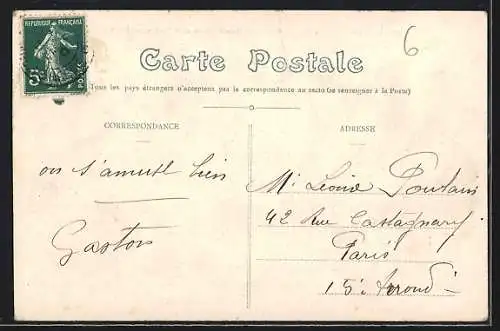 REPUBLIQUE FRANÇAISE
5c
POSTES
6
Carte Postale
(Tous les pays étrangers n'acceptent pas la correspondance au recto (se renseigner à la Poste)
CORRESPONDANCE
ADRESSE
on s'amuse bien
Gaston
Mr Léonie Poulain
42 Rue Castagnary
Paris
15e Arrond